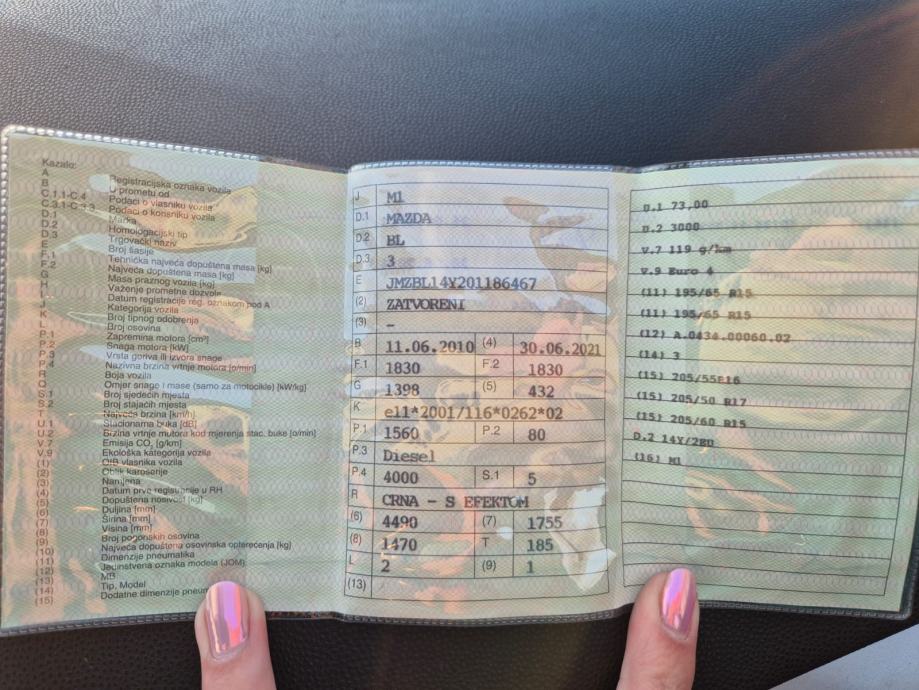 Kazalo:
A Registracijska oznaka vozila
B U prometu od
C.1.1-C.4 Podaci o vlasniku vozila
C.3.1-C.3.3 Podaci o korisniku vozila
D.1 Marka
D.2 Homologacijski tip
D.3 Trgovački naziv
E Broj šasije
F.1 Tehnička najveća dopuštena masa [kg]
F.2 Najveća dopuštena masa [kg]
G Masa praznog vozila [kg]
H Važenje prometne dozvole
I Datum registracije reg. oznakom pod A
J Kategorija vozila
K Broj tipnog odobrenja
L Broj osovina
P.1 Zapremina motora [cm³]
P.2 Snaga motora [kW]
P.3 Vrsta goriva ili izvora snage
P.4 Nazivna brzina vrtnje motora [o/min]
R Boja vozila
Q Omjer snage i mase (samo za motocikle) [kW/kg]
S.1 Broj sjedećih mjesta
S.2 Broj stajaćih mjesta
T Najveća brzina [km/h]
U.1 Stacionarna buka [dB]
U.2 Brzina vrtnje motora kod mjerenja stac. buke [o/min]
V.7 Emisija CO₂ [g/km]
V.9 Ekološka kategorija vozila
(1) OIB vlasnika vozila
(2) Oblik karoserije
(3) Namjena
(4) Datum prve registracije u RH
(5) Dopuštena nosivost [kg]
(6) Duljina [mm]
(7) Širina [mm]
(8) Visina [mm]
(9) Broj pogonskih osovina
(10) Najveća dopuštena osovinska opterećenja [kg]
(11) Dimenzije pneumatika
(12) Jedinstvena oznaka modela (JOM)
(13) MB
(14) Tip, Model
(15) Dodatne dimenzije pneum
J M1
D.1 MAZDA
D.2 BL
D.3 3
E JMZBL14Y201186467
(2) ZATVORENI
(3) –
B 11.06.2010 (4) 30.06.2021
F.1 1830 F.2 1830
G 1398 (5) 432
K e11*2001/116*0262*02
P.1 1560 P.2 80
P.3 Diesel
P.4 4000 S.1 5
R CRNA - S EFEKTOM
(6) 4490 (7) 1755
(8) 1470 T 185
L 2 (9) 1
(13)
U.1 73,00
U.2 3000
V.7 119 g/km
V.9 Euro 4
(11) 195/65 R15
(11) 195/65 R15
(12) A.0434.00060.02
(14) 3
(15) 205/55R16
(15) 205/50 R17
(15) 205/60 R15
D.2 14Y/2BU
(16) M1